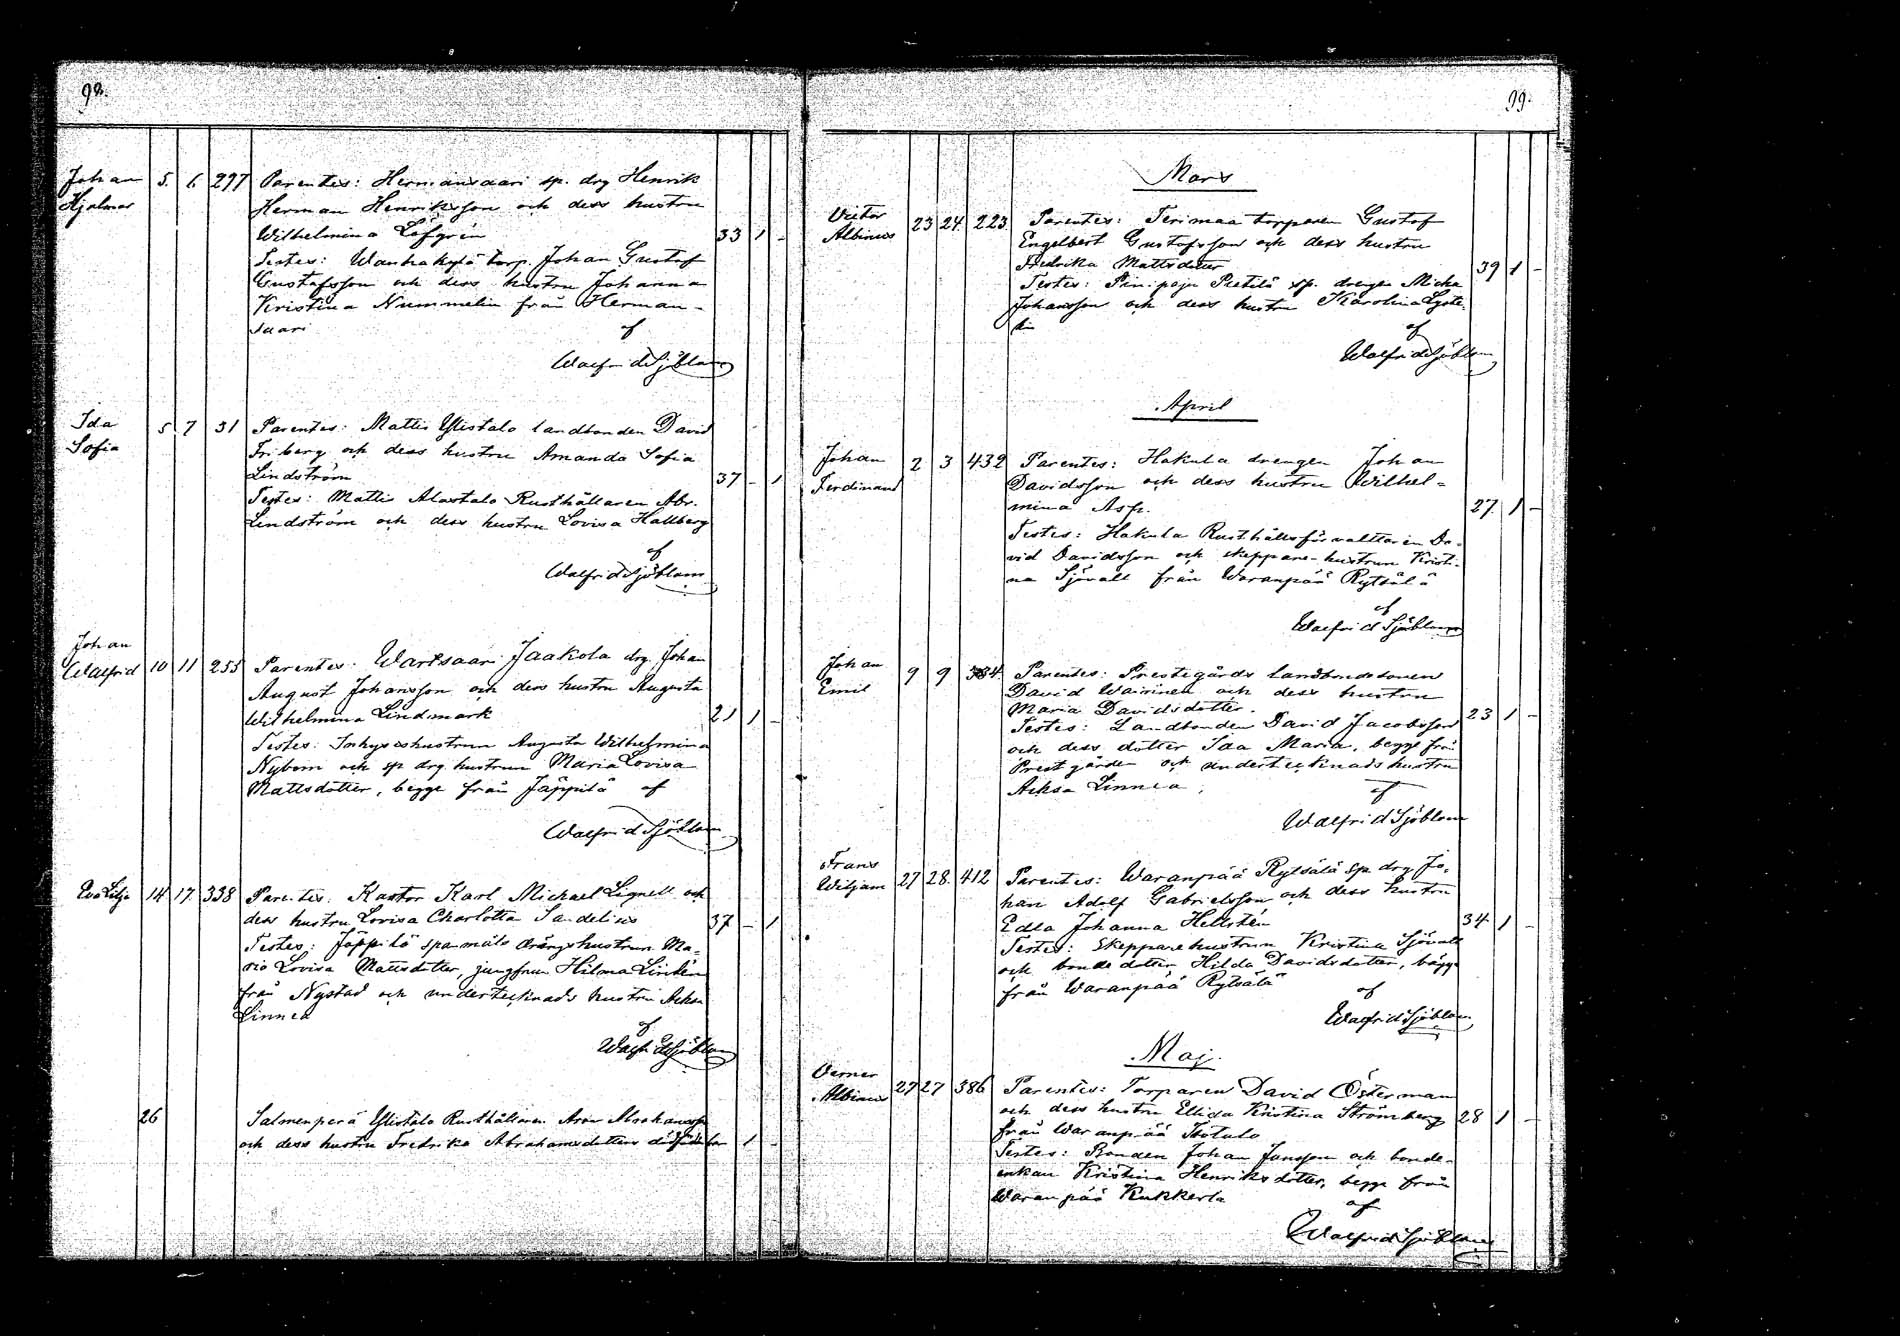 98.
Johan 5. 6. 297 Parentes: Hermansaari sp. drg Henrik
Hjalmar Herman Henriksson och dess hustru
Wilhelmina Löfgrén 33 1 -
Testes: Wanhakylä torp. Johan Gustaf
Gustafsson och dess hustru Johanna
Kristina Nummelin från Herman-
saari af
Walfrid Sjöblom
Ida 5. 7 31 Parentes: Mattis Ylistalo landbonden David
Sofia Friberg och dess hustru Amanda Sofia
Lindström 37 - 1
Testes: Mattis Alastalo Rusthållaren Abr.
Lindström och dess hustru Lovisa Hallberg
af
Walfrid Sjöblom
Johan
Walfrid 10 11 255 Parentes: Wartsaari Jaakola drg. Johan
August Johansson och dess hustru Augusta
Wilhelmina Lindmark 21 1 -
Testes: Inhyseshustrun Augusta Wilhelmina
Nybom och sp drg. hustrun Maria Lovisa
Mattsdotter, begge från Jäppilä af
Walfrid Sjöblom
Eva Lilja 14 17. 338 Parentes: Kantor Karl Michael Lignell och
dess hustru Lovisa Charlotta Sandelius 37 - 1
Testes: Jäppilä spanmåls drängshustrun Ma-
ria Lovisa Mattsdotter, jungfrun Hilma Lindén
från Nystad och undertecknads hustru Acksa
Linnea
af
Walfrid Sjöblom
26 Salmenperä Ylistalo Rusthållaren Aron Abrahamsson
och dess hustru Fredrika Abrahamsdotters dödfödde son 1 -
99.
Mars
Victor 23 24. 223. Parentes: Terimaa torparen Gustaf
Albinus Engelbert Gustafsson och dess hustru
Fredrika Mattsdotter 39 1 -
Testes: Pinipaju Pietilä sp. drengen Micke
Johansson och dess hustru Karolina Lyste-
lin
af
Walfrid Sjöblom
April
Johan 2 3 432 Parentes: Hakula drengen Johan
Ferdinand Davidsson och dess hustru Wilhel-
mina Asp. 27. 1 -
Testes: Hakula Rusthållsförvaltaren Da-
vid Davidsson och skeppare-hustrun Kristi-
na Sjövall från Waranpää Rytsälä
af
Walfrid Sjöblom
Johan 9 9 384. Parentes: Prestegårds landbondsonen
Emil David Wäininen och dess hustru
Maria Davidsdotter. 23 1 -
Testes: Landbonden David Jacobsson
och dess dotter Ida Maria, begge från
Prestgården och undertecknads hustru
Acksa Linnea,
af
Walfrid Sjöblom
Frans
Wiljam 27 28. 412 Parentes: Waranpää Rytsälä sp. drg Jo-
han Adolf Gabrielsson och dess hustru
Edla Johanna Hellstén 34. 1 -
Testes: Skepparehustrun Kristina Sjövall
och bondedotter Hilda Davidsdotter, bägge
från Waranpää Rytsälä
af
Walfrid Sjöblom
Maj.
Verner
Albinus 27 27 386 Parentes: Torparen David Österman
och dess hustru Ellida Kristina Strömberg 28 1 -
från Waranpää Isotalo
Testes: Bonden Johan Jansson och bonde-
enkan Kristina Henriksdotter, begge från
Waranpää Kukkerla
af
Walfrid Sjöblom